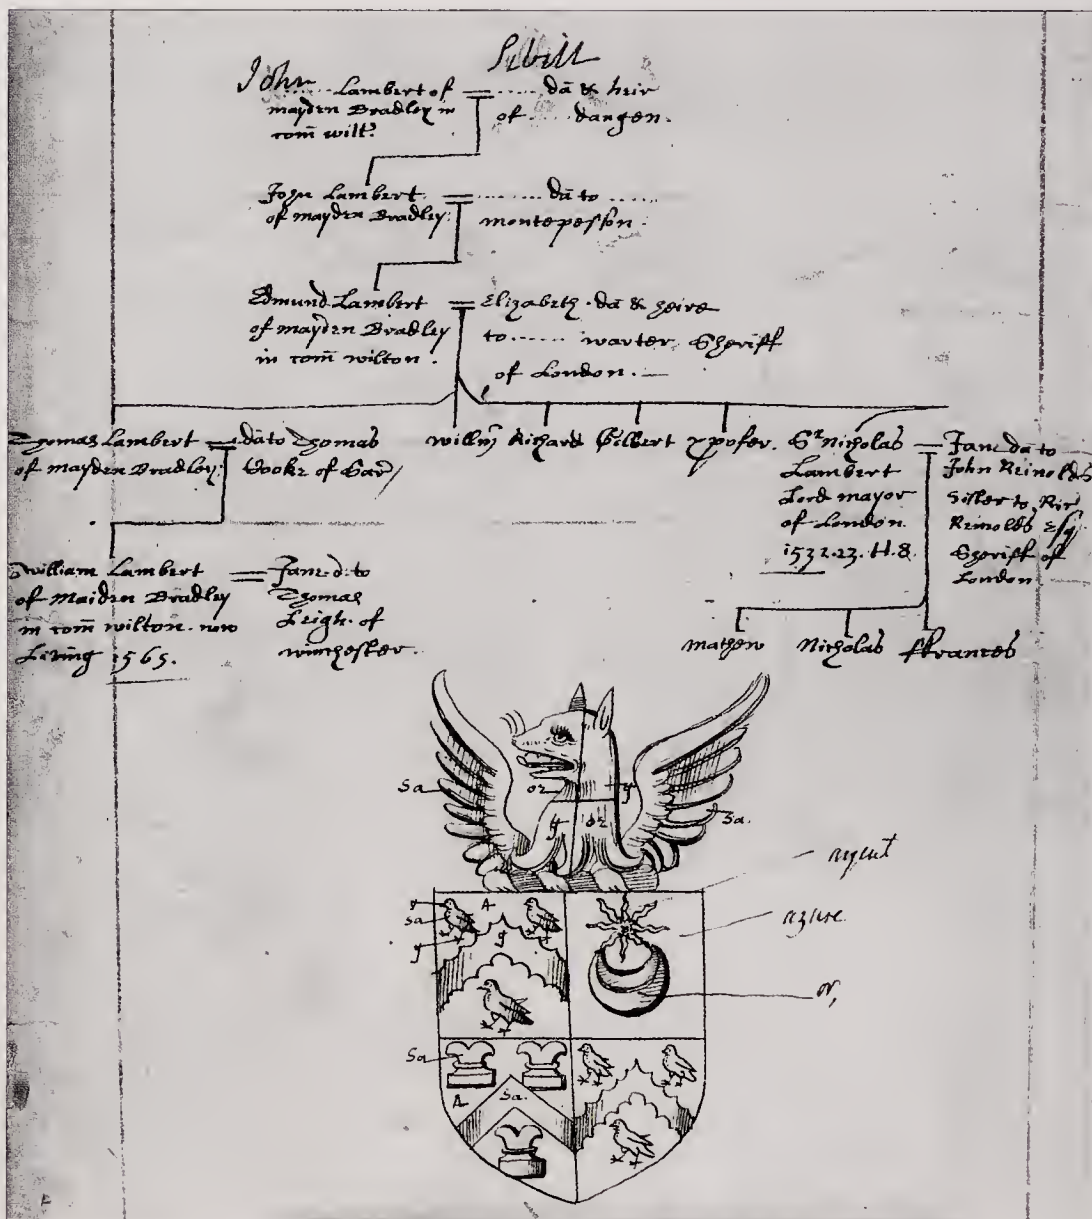 John Sibill
...... Lambert of
mayden Bradley in
com̄ wilt?
...... dā & heir
of ..... dangen.
John Lambert
of mayden Bradley:
....... dā to ......
montepesson.
Edmund Lambert
of mayden Bradley
in com̄ wilton.
Elizabeth. dā & heire
to ...... warter Sheriff
of London.
Thomas Lambert
of mayden Bradley:
dā to Thomas
of Sar/
willm̄
Richard
Gilbert
xpofer.
Sr Nicholas
Lambert
Lord mayor
of London.
1532.23.H.8.
Jane dā to
John Reinolds
Sister to Ric
Reinolds Esq.
Sheriff of
London
William Lambert
of Maiden Bradley
in com̄ wilton. now
Living 1565.
Jane d. to
Thomas
Leigh. of
winchester.
mathew
Nicholas
ffrances
Sa
or
g
g
or
Sa.
argent
azure.
or,
g
Sa
g
A
g
Sa
A
Sa.